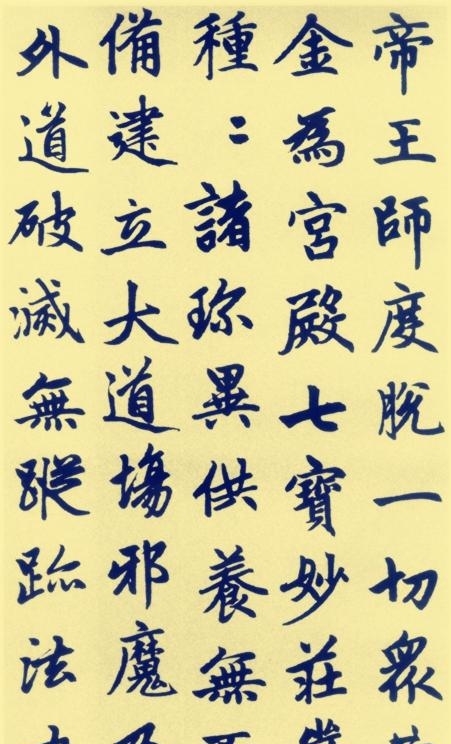 帝王師度脫一切衆
金為宮殿七寶妙莊
種〻諸珎異供養無
備建立大道場邪魔
外道破滅無蹤跡法